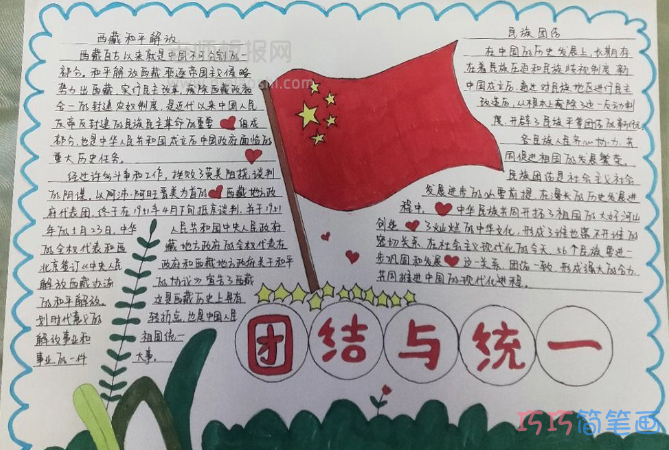 西藏和平解放
西藏自古以来就是中国不可分割的
部分。和平解放西藏,驱逐帝国主义侵略
势力出西藏,实行民主改革,废除西藏政教
合一的封建农奴制度,是近代以来中国人民
反帝反封建的民族民主革命的重要组成
部分,也是中华人民共和国成立后中国政府面临的
重大历史任务。
经过许多斗争和工作,挫败了英美阻挠谈判
的阴谋,以阿沛·阿旺晋美为首的西藏地方政
府代表团,终于在1951年4月下旬抵京谈判,并于1951
年5月23日,中华人民共和国中央人民政府
的全权代表和西藏地方政府的全权代表在
北京签订《中央人民政府和西藏地方政府关于和平
解放西藏办法的协议》,宣告了西藏
的和平解放。这是西藏历史上具有
划时代意义的转折点,也是中国人民
解放事业和祖国统一
事业的一件大事。
民族团结
在中国的历史发展上,长期存
在着民族压迫和民族歧视制度,新
中国成立后,通过对民族地区进行民主
改造后,从根本上废除了这一反动制
度,开辟了民族平等团结的新时代
各民族人民齐心协力,共
同促进祖国的发展繁荣。
民族团结是社会主义社会
发展进步的必要前提,在漫长的历史发展进
程中,中华民族共同开拓了祖国的大好河山
创造了灿烂的中华文化,形成了谁也离不开谁的
密切关系,在社会主义现代化的今天,56个民族要进一
步巩固和发展这一关系,团结一致,形成强大的合力
共同推进中国的现代化进程。
团结与统一
巧巧简笔画